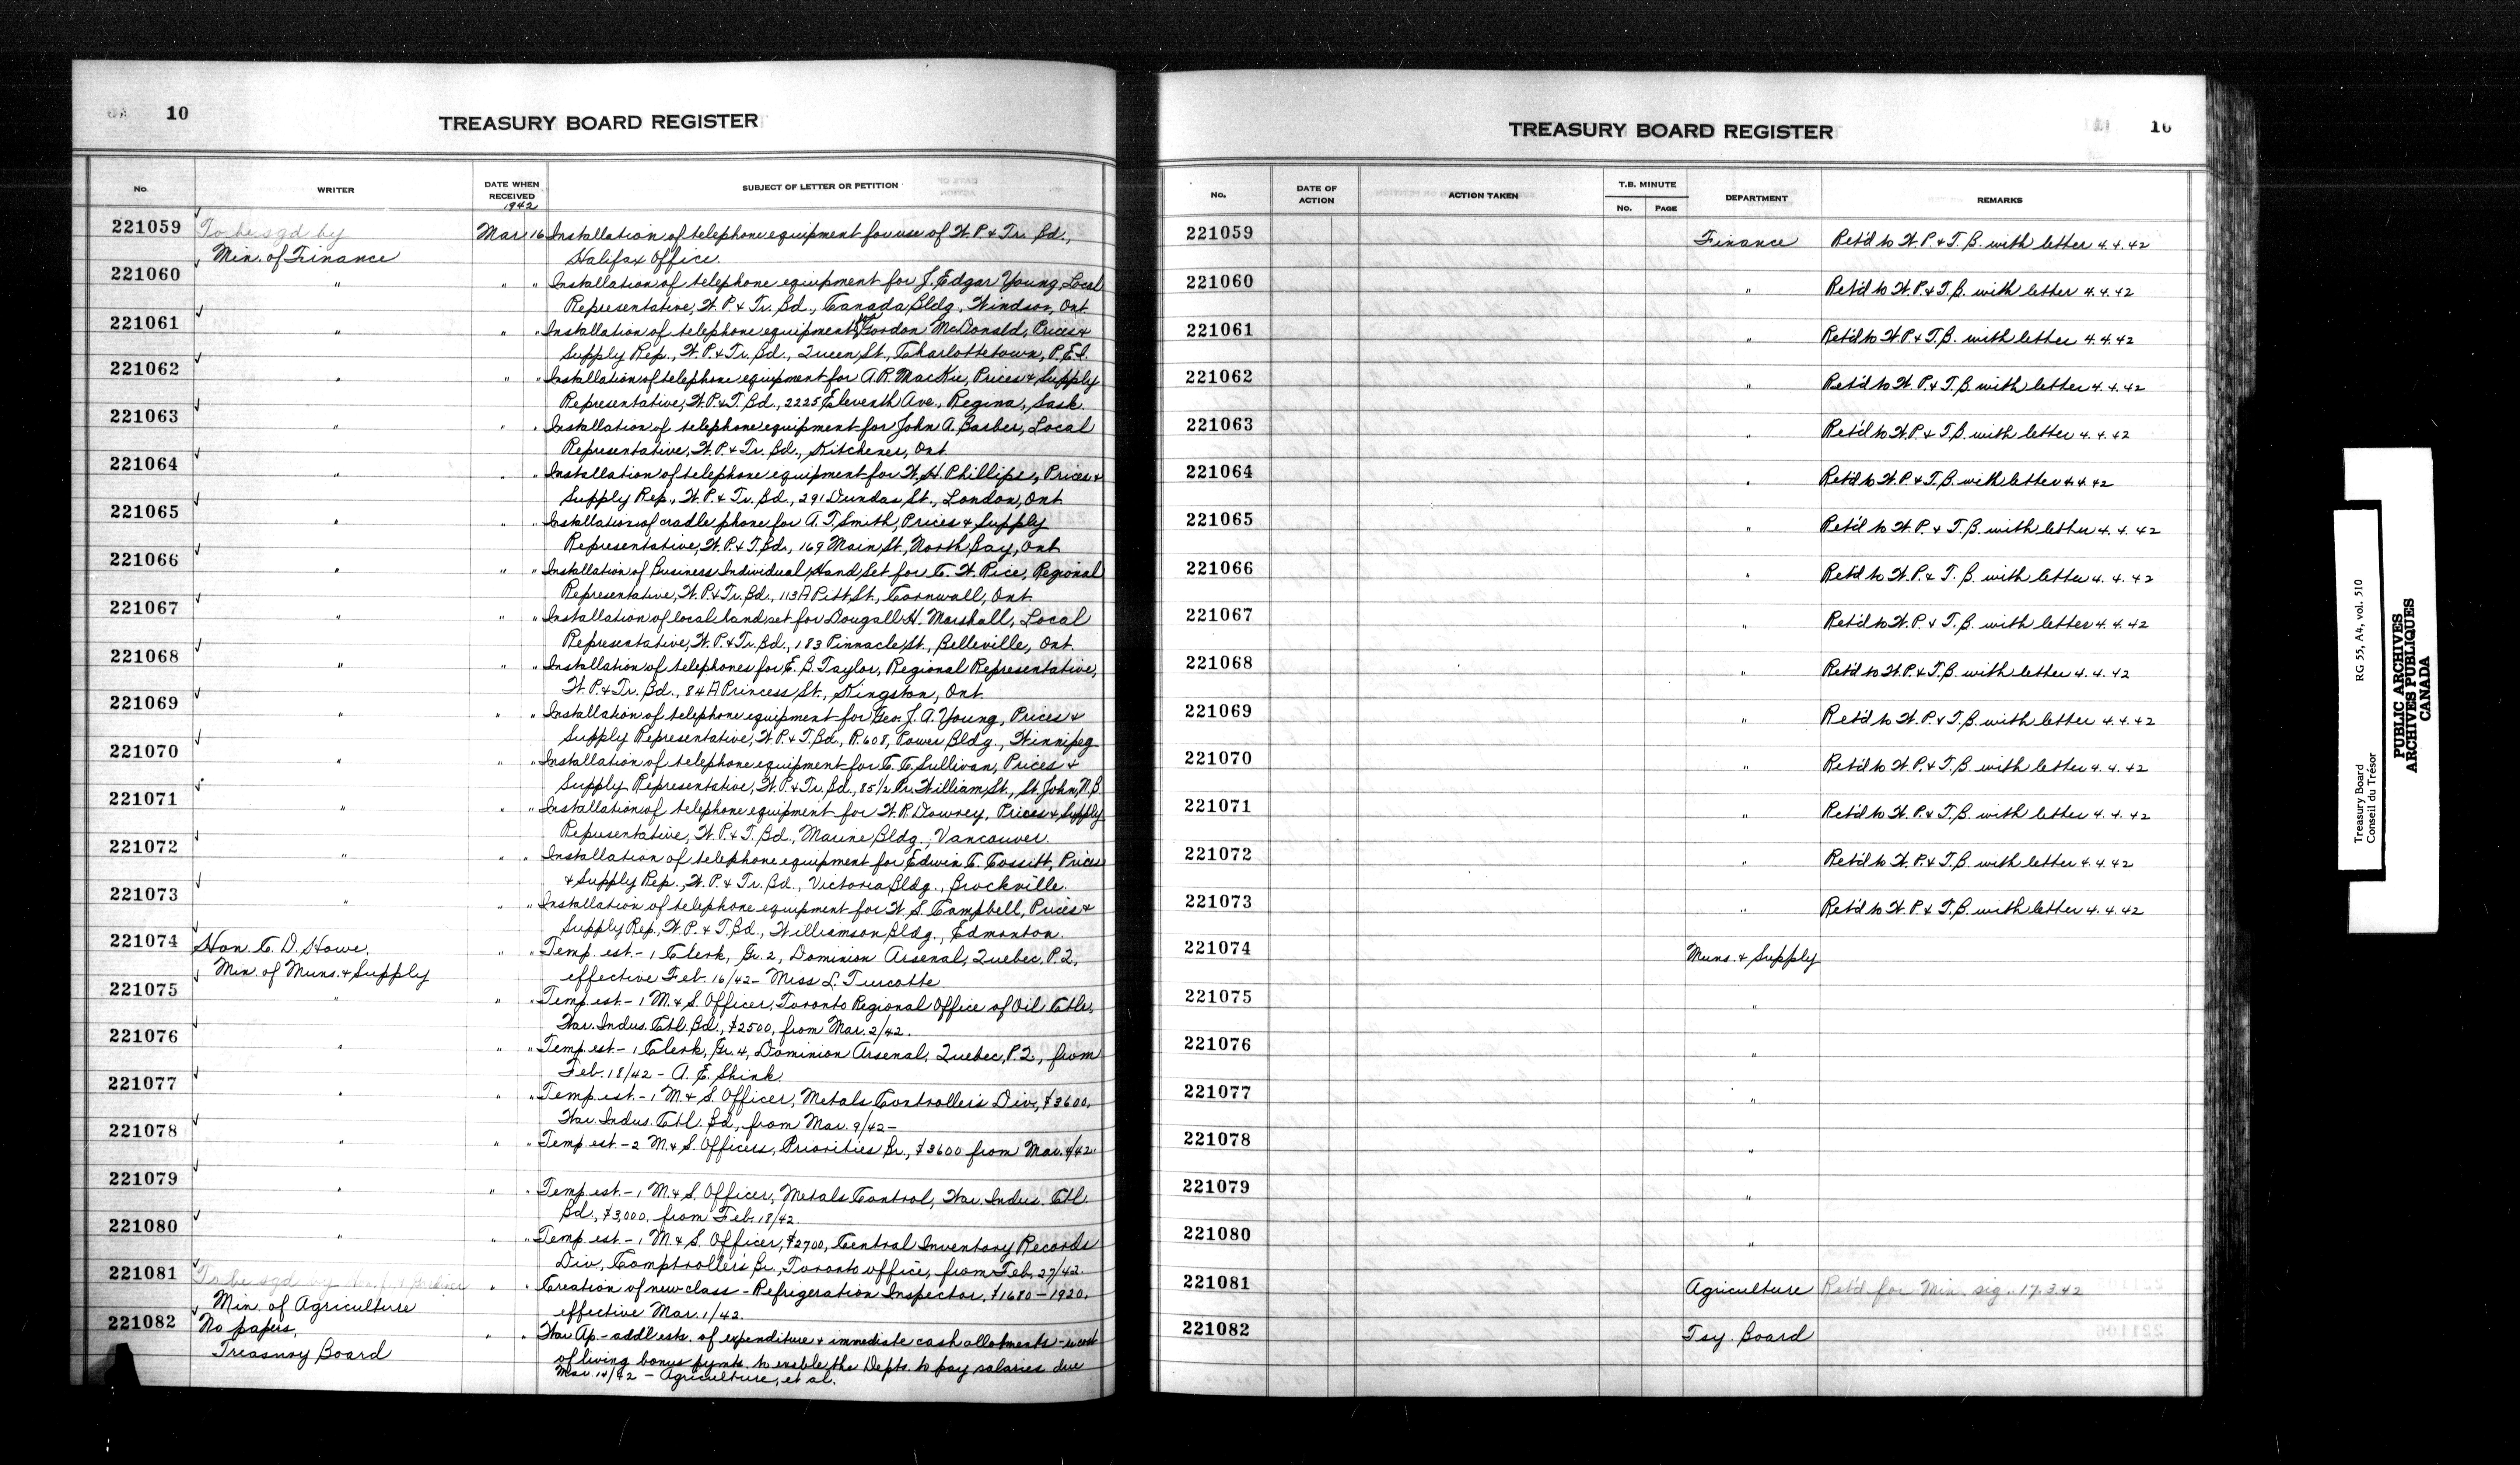 10
TREASURY BOARD REGISTER
No. WRITER DATE WHEN RECEIVED SUBJECT OF LETTER OR PETITION
1942
221059 To be sgd by Mar 16 Installation of telephone equipment for use of W. P. & Tr. Bd.,
Min. of Finance Halifax Office.
221060 " " " Installation of telephone equipment for J. Edgar Young, Local
Representative, W. P. & Tr. Bd., Canada Bldg, Windsor, Ont.
221061 " " " Installation of telephone equipment for Gordon McDonald, Prices &
Supply Rep., W. P. & Tr. Bd., Queen St., Charlottetown, P.E.I.
221062 " " " Installation of telephone equipment for A.R. MacKie, Prices & Supply
Representative, W. P. & T. Bd., 2225 Eleventh Ave., Regina, Sask.
221063 " " " Installation of telephone equipment for John A. Barber, Local
Representative, W. P. & Tr. Bd., Kitchener, Ont.
221064 " " " Installation of telephone equipment for W. H. Phillips, Prices &
Supply Rep., W. P. & Tr. Bd., 291 Dundas St., London, Ont
221065 " " " Installation of cradle phone for A. T. Smith, Prices & Supply
Representative, W. P. & T. Bd., 169 Main St., North Bay, Ont
221066 " " " Installation of Business Individual Hand Set for C. W. Rice, Regional
Representative, W. P. & Tr. Bd., 113A Pitt St., Cornwall, Ont.
221067 " " " Installation of local hand set for Dougall H. Marshall, Local
Representative, W. P. & Tr. Bd., 183 Pinnacle St., Belleville, Ont.
221068 " " " Installation of telephones for E. B. Taylor, Regional Representative,
W. P. & Tr. Bd., 84A Princess St., Kingston, Ont.
221069 " " " Installation of telephone equipment for Geo. J. A. Young, Prices &
Supply Representative, W. P. & T. Bd., R. 608, Power Bldg., Winnipeg
221070 " " " Installation of telephone equipment for C. C. Sullivan, Prices &
Supply Representative, W. P. & Tr. Bd., 85 1/2 Pr. William St., St. John, N.B.
221071 " " " Installation of telephone equipment for W. R. Dowrey, Prices & Supply
Representative, W. P. & T. Bd., Marine Bldg., Vancouver.
221072 " " " Installation of telephone equipment for Edwin C. Cossitt, Prices
& Supply Rep., W. P. & Tr. Bd., Victoria Bldg., Brockville.
221073 " " " Installation of telephone equipment for W. S. Campbell, Prices &
Supply Rep., W. P. & T. Bd., Williamson Bldg., Edmonton.
221074 Hon. C. D. Howe, " " Temp. est. - 1 Clerk, Gr. 2, Dominion Arsenal, Quebec, P.Q.,
Min. of Muns. & Supply effective Feb. 16/42 - Miss L. Turcotte
221075 " " " Temp est. - 1 M. & S. Officer, Toronto Regional Office of Oil Ctlr.,
War. Indus. Ctl. Bd., $2500, from Mar. 2/42.
221076 " " " Temp est. - 1 Clerk, Gr. 4, Dominion Arsenal, Quebec, P.Q., from
Feb. 18/42 - A. E. Shink.
221077 " " " Temp est. - 1 M. & S. Officer, Metals Controller's Div., $3600,
War. Indus. Ctl. Bd., from Mar. 9/42 -
221078 " " " Temp est - 2 M. & S. Officers, Priorities Br., $3600 from Mar. 4/42.
221079 " " " Temp est. - 1 M. & S. Officer, Metals Control, War. Indus. Ctl.
Bd., $3,000, from Feb. 18/42.
221080 " " " Temp est. - 1 M. & S. Officer, $2700, Central Inventory Records
Div., Comptroller's Br., Toronto office, from Feb. 27/42.
221081 To be sgd by Hon. J. G. Gardiner " " Creation of new class - Refrigeration Inspector, $1680 - 1920,
Min. of Agriculture effective Mar. 1/42.
221082 No papers, " " War Ap - add'l ests. of expenditure & immediate cash allotments - re cost
Treasury Board of living bonus pymts. to enable the Depts. to pay salaries due
Mar. 14/42 - Agriculture, et al.
10
TREASURY BOARD REGISTER
No. DATE OF ACTION ACTION TAKEN T.B. MINUTE No. PAGE DEPARTMENT REMARKS
221059 Finance Ret'd to W. P. & T. B. with letter 4.4.42
221060 " Ret'd to W. P. & T. B. with letter 4.4.42
221061 " Ret'd to W. P. & T. B. with letter 4.4.42
221062 " Ret'd to W. P. & T. B. with letter 4.4.42
221063 " Ret'd to W. P. & T. B. with letter 4.4.42
221064 " Ret'd to W. P. & T. B. with letter 4.4.42
221065 " Ret'd to W. P. & T. B. with letter 4.4.42
221066 " Ret'd to W. P. & T. B. with letter 4.4.42
221067 " Ret'd to W. P. & T. B. with letter 4.4.42
221068 " Ret'd to W. P. & T. B. with letter 4.4.42
221069 " Ret'd to W. P. & T. B. with letter 4.4.42
221070 " Ret'd to W. P. & T. B. with letter 4.4.42
221071 " Ret'd to W. P. & T. B. with letter 4.4.42
221072 " Ret'd to W. P. & T. B. with letter 4.4.42
221073 " Ret'd to W. P. & T. B. with letter 4.4.42
221074 Muns. & Supply
221075 "
221076 "
221077 "
221078 "
221079 "
221080 "
221081 Agriculture Ret'd for Min. sig. 17.3.42
221082 Tsy. Board
Treasury Board RG 55, A4, vol. 510
Conseil du Trésor
PUBLIC ARCHIVES
ARCHIVES PUBLIQUES
CANADA